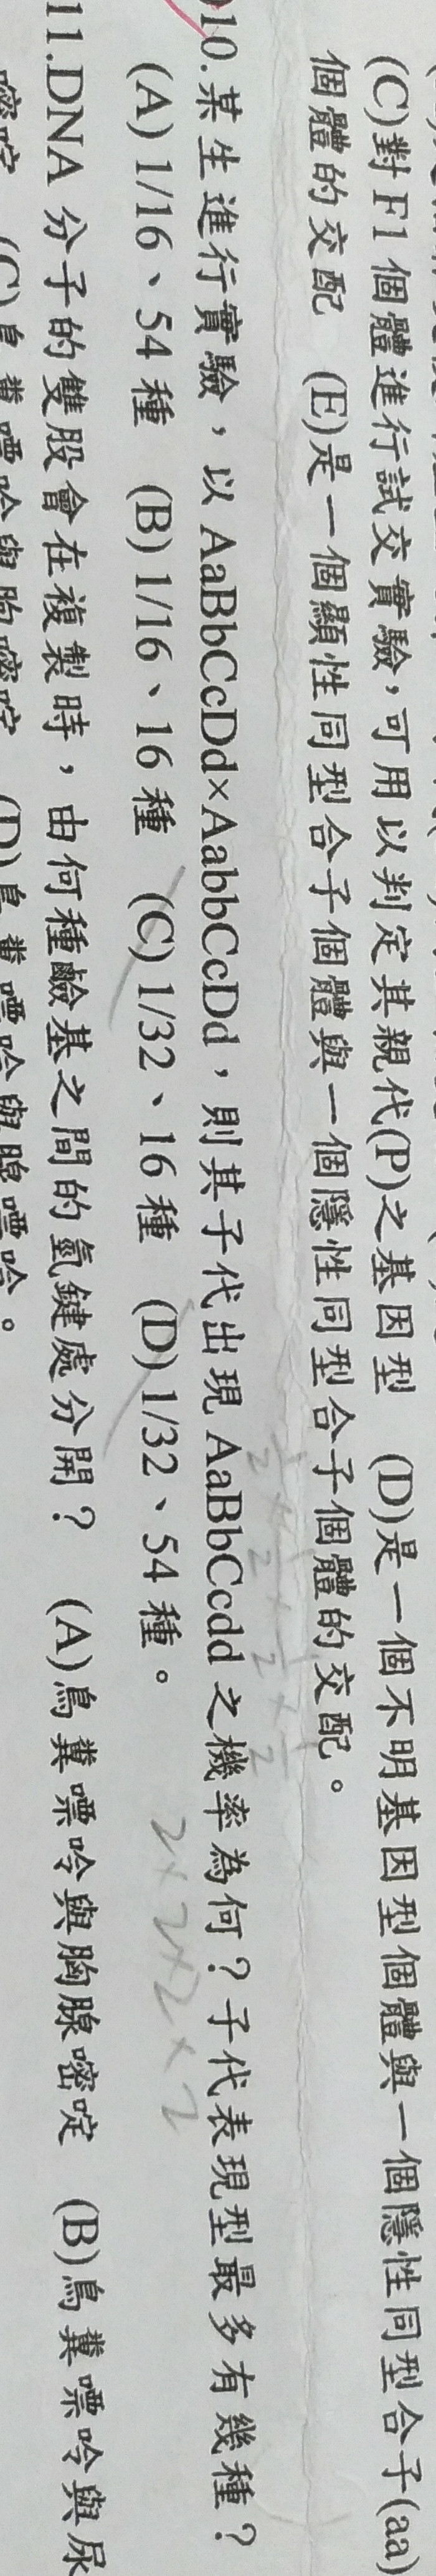 (C)對F1個體進行試交實驗，可用以判定其親代(P)之基因型 (D)是一個不明基因型個體與一個隱性同型合子(aa)
個體的交配 (E)是一個顯性同型合子個體與一個隱性同型合子個體的交配。
10.某生進行實驗，以AaBbCcDd×AabbCcDd，則其子代出現AaBbCcdd之機率為何？子代表現型最多有幾種？
(A) 1/16、54種 (B) 1/16、16種 (C) 1/32、16種 (D) 1/32、54種。
2×2×2×2
11.DNA 分子的雙股會在複製時，由何種鹼基之間的氫鍵處分開？ (A)鳥糞嘌呤與胸腺嘧啶 (B)鳥糞嘌呤與尿
嘧啶 (C)鳥糞嘌呤與胞嘧啶 (D)鳥糞嘌呤與腺嘌呤。